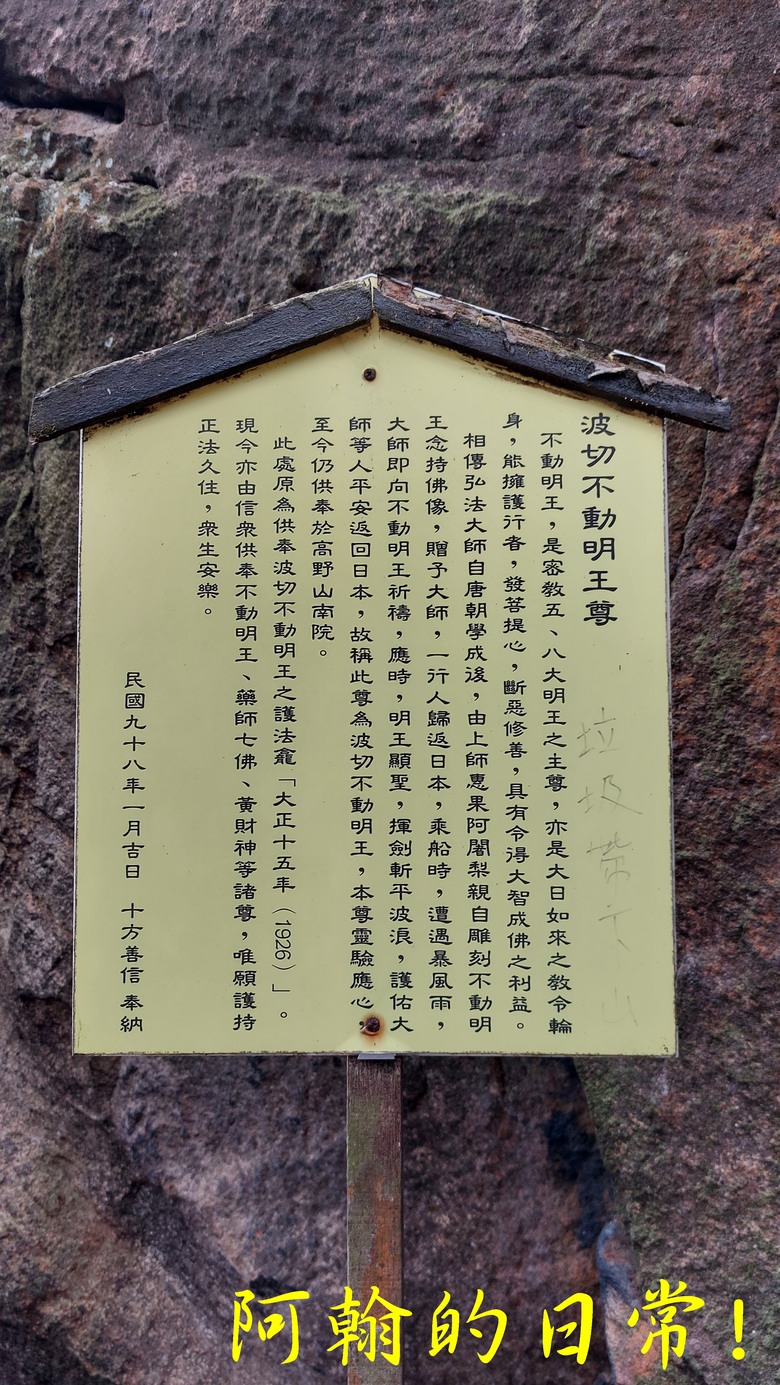 波切不動明王尊
不動明王，是密教五、八大明王之主尊，亦是大日如來之教令輪
身，能擁護行者，發菩提心，斷惡修善，具有令得大智成佛之利益。
相傳弘法大師自唐朝學成後，由上師惠果阿闍梨親自雕刻不動明
王念持佛像，贈予大師，一行人歸返日本，乘船時，遭遇暴風雨，
大師即向不動明王祈禱，應時，明王顯聖，揮劍斬平波浪，護佑大
師等人平安返回日本，故稱此尊為波切不動明王，本尊靈驗應心，
至今仍供奉於高野山南院。
此處原為供奉波切不動明王之護法龕「大正十五年（1926）」。
現今亦由信衆供奉不動明王、藥師七佛、黃財神等諸尊，唯願護持
正法久住，衆生安樂。
民國九十八年一月吉日 十方善信 奉納
垃圾帶下山
阿翰的日常！